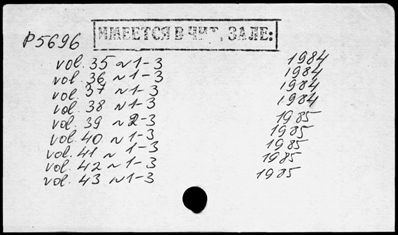 P5696 ИМЕЕТСЯ В ЧИТ. ЗАЛЕ:
vol. 35 N 1-3 1984
vol. 36 N 1-3 1984
vol. 37 N 1-3 1984
vol. 38 N 1-3 1984
vol. 39 N 2-3 1985
vol. 40 N 1-3 1985
vol. 41 N 1-3 1985
vol. 42 N 1-3 1985
vol. 43 N 1-3 1985